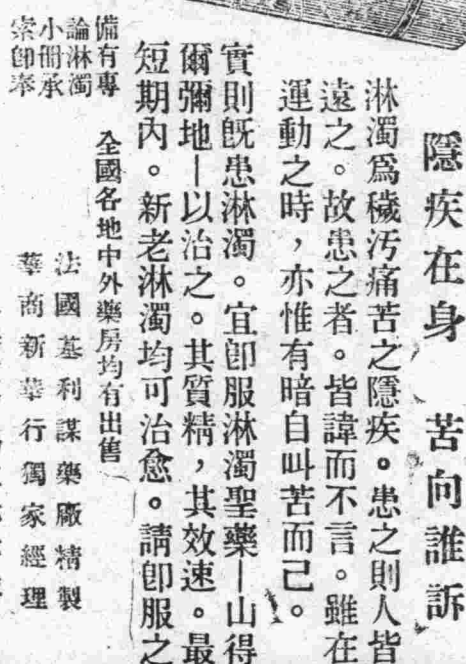 隱疾在身　苦向誰訴
淋濁爲穢汚痛苦之隱疾。患之則人皆
遠之。故患之者。皆諱而不言。雖在
運動之時，亦惟有暗自叫苦而己。
實則旣患淋濁。宜卽服淋濁聖藥—山得
爾彌地—以治之。其質精，其效速。最
短期內。新老淋濁均可治愈。請卽服之
備有專
論淋濁
小冊承
索卽奉
全國各地中外藥房均有出售
法國基利謀藥廠精製
華商新華行獨家經理